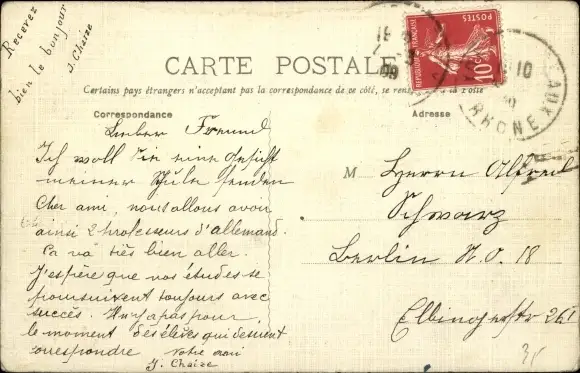 Recevez
bien le bonjour
J. Chaize
CARTE POSTALE
Certains pays étrangers n'acceptant pas la correspondance de ce côté, se
Correspondance
Adresse
REPUBLIQUE FRANÇAISE
POSTES
10c
RHONE
Lieber Freund
Ich woll Sie eine Ansicht
meiner Schule senden
Cher ami, nous allons avoir
ainsi 2 professeurs d'allemand.
Ça va très bien aller.
J'espère que vos études se
poursuivent toujours avec
succès. Il n'y a pas pour
le moment des élèves qui desirent
correspondre Votre ami
J. Chaize
M Herrn Alfred
Schwarz
Berlin N.O. 18
Elbingerstr 26